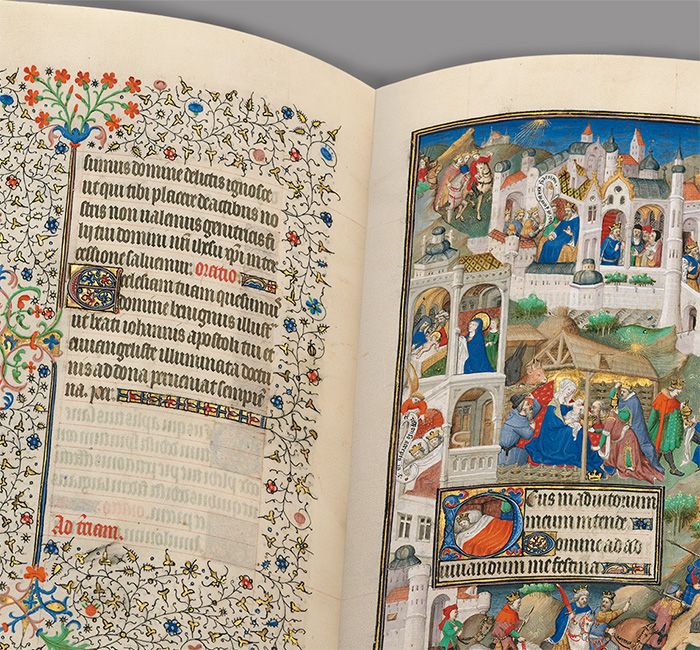 sumus domine delictis ignosce
ut qui tibi placere de actibus no
stris non ualemus genitricis fi
lij tui domini nrı ihesu xpi inter
cessione saluemur. oratio
Ecclesiam tuam quesumus
domine benignus illust
ut beati iohannis apostoli tui et
euuangeliste illuminata doctri
nis ad dona perueniat sempite
na. per
Ad tciam.
Deus in adiutorium
meum intende
Domine ad ad
iuuandum me festina